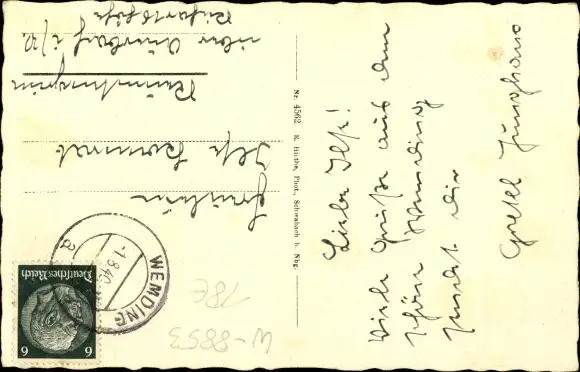 Liebe Ilse!
Viele Grüße aus dem
schönen Wemding
sendet dir
Gretel Junghans
Nr. 4562 R. Hirthe, Phot., Schwabach b. Nbg.
Fräulein
Ilse
über Auerbach i/V.
WEMDING
-1.8.40
a
Deutsches Reich
6 6
W-8853
18E